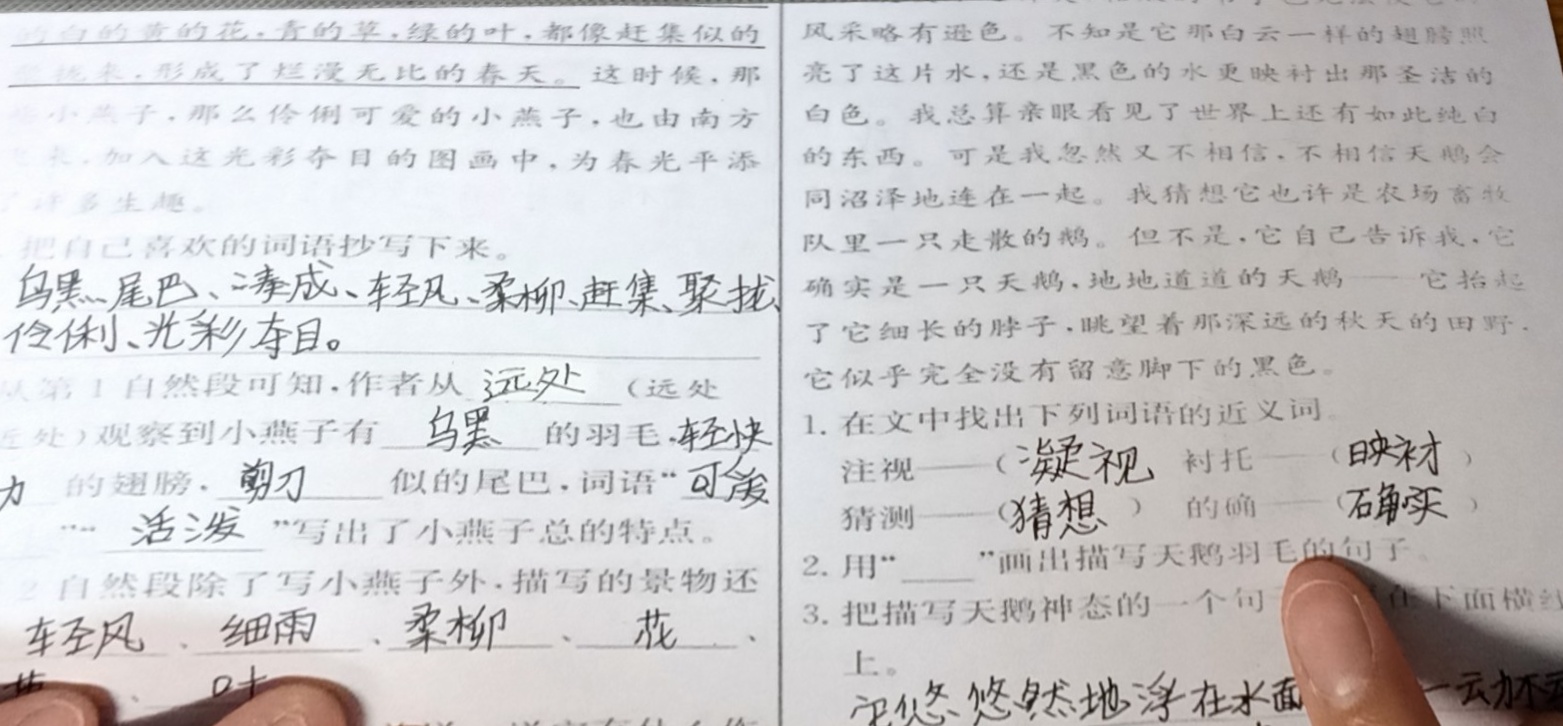 的白的黄的花,青的草,绿的叶,都像赶集似的
聚拢来,形成了烂漫无比的春天。这时候,那
些小燕子,那么伶俐可爱的小燕子,也由南方
飞来,加入这光彩夺目的图画中,为春光平添
了许多生趣。
把自己喜欢的词语抄写下来。
乌黑、尾巴、凑成、轻风、柔柳、赶集、聚拢、
伶俐、光彩夺目。
从第1自然段可知,作者从 远处 (远处
近处)观察到小燕子有 乌黑 的羽毛,轻快
力 的翅膀,剪刀 似的尾巴,词语“可爱
”“活泼”写出了小燕子总的特点。
2 自然段除了写小燕子外,描写的景物还
轻风、细雨、柔柳、花、
叶
风采略有逊色。不知是它那白云一样的翅膀照
亮了这片水,还是黑色的水更映衬出那圣洁的
白色。我总算亲眼看见了世界上还有如此纯白
的东西。可是我忽然又不相信,不相信天鹅会
同沼泽地连在一起。我猜想它也许是农场畜牧
队里一只走散的鹅。但不是,它自己告诉我,它
确实是一只天鹅,地地道道的天鹅——它抬起
了它细长的脖子,眺望着那深远的秋天的田野,
它似乎完全没有留意脚下的黑色。
1. 在文中找出下列词语的近义词
注视——(凝视 衬托——(映衬)
猜测——(猜想) 的确——(确实)
2. 用“____”画出描写天鹅羽毛的句子
3. 把描写天鹅神态的一个句 在下面横线
上。
悠悠然地浮在水面